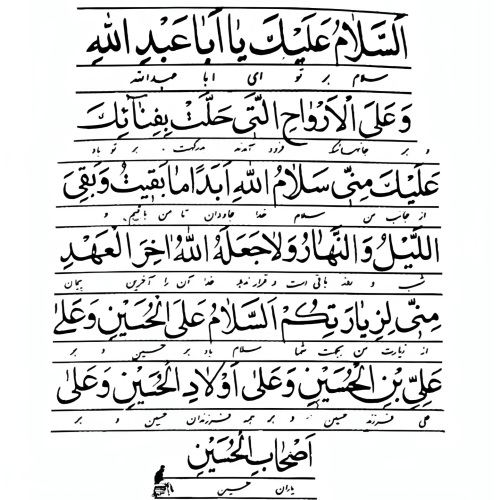 اَلسَّلامُ عَلَيْكَ يا اَبا عَبْدِ اللهِ
سلام بر تو ای ابا عبدالله
وَ عَلَى الْاَرْواحِ الَّتى حَلَّتْ بِفِنآئِكَ
و بر جانهائیکه فرود آمدند درگهت، بر تو باد
عَلَيْكَ مِنّى سَلامُ اللهِ اَبَدًا ما بَقيتُ وَ بَقِىَ
از جانب من سلام خدا جاودان تا من باقیم و
اللَّيْلُ وَ النَّهارُ وَ لا جَعَلَهُ اللهُ اخِرَ الْعَهْدِ
شب و روز باقی است و قرار ندهد خدا آن را آخرین پیمان
مِنّى لِزِيارَتِكُمْ اَلسَّلامُ عَلَى الْحُسَيْنِ وَ عَلى
از زیارت من بجهت شما سلام باد بر حسین و بر
عَلِىِّ بْنِ الْحُسَيْنِ وَ عَلى اَوْلادِ الْحُسَيْنِ وَ عَلى
علی فرزند حسین و بر همه فرزندان حسین و بر
اَصْحابِ الْحُسَيْنِ
یاران حسین